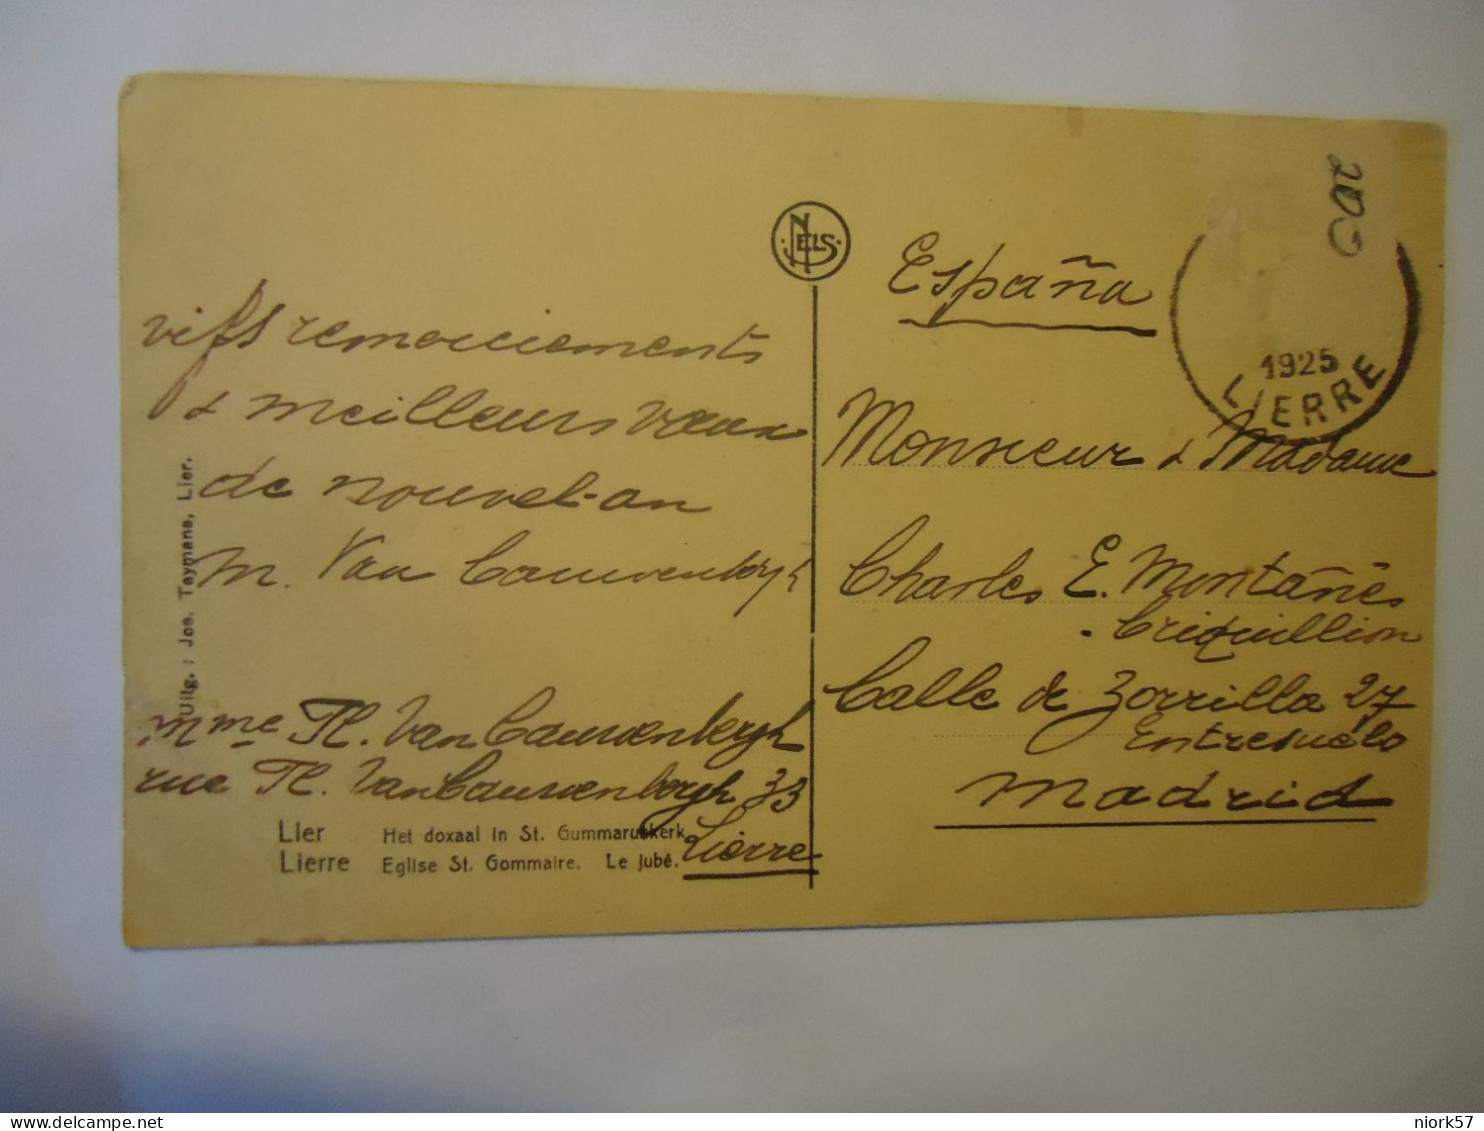 vifs remerciements
& meilleurs vœux
de nouvel-an
M. Van Cauwenbergh
Mme Th. Van Cauwenbergh
rue Th. Van Cauwenbergh 33
Lierre
Uitg. : Jos. Taymans, Lier.
Lier Het doxaal in St. Gummaruskerk
Lierre Eglise St. Gommaire. Le jubé.
NELS
España
200
1925
LIERRE
Monsieur & Madame
Charles E. Montañés
- Criquillion
Calle de Zorrilla 27
Entresuelo
Madrid
niork57